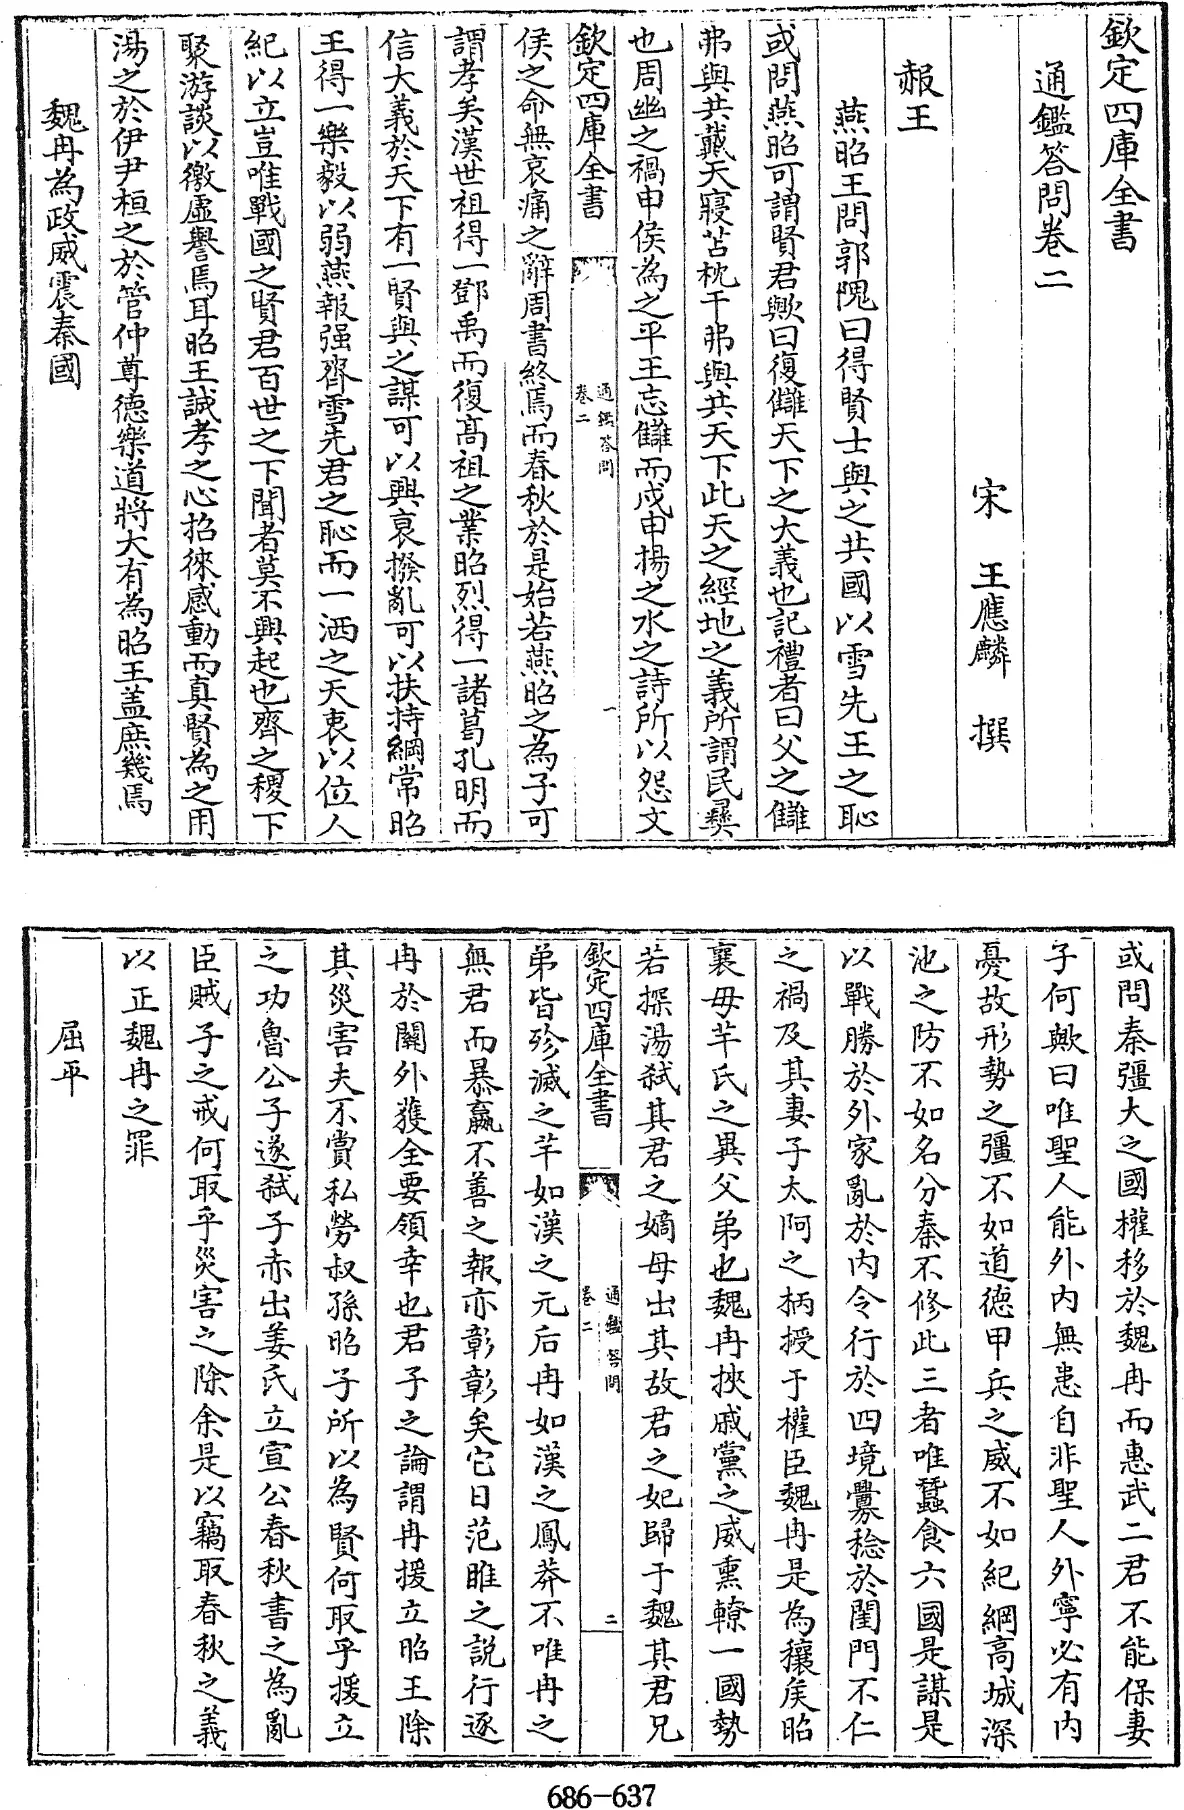 欽定四庫全書
通鑑答問卷二
宋　王應麟　撰
赧王
燕昭王問郭隗曰得賢士與之共國以雪先王之恥
或問燕昭可謂賢君歟曰復讎天下之大義也記禮者曰父之讎
弗與共戴天寢苫枕干弗與共天下此天之經地之義所謂民彝
也周幽之禍申侯為之平王忘讎而戍申揚之水之詩所以怨文
欽定四庫全書
通鑑答問
卷二
一
侯之命無哀痛之辭周書終焉而春秋於是始若燕昭之為子可
謂孝矣漢世祖得一鄧禹而復髙祖之業昭烈得一諸葛孔明而
信大義於天下有一賢與之謀可以興衰撥亂可以扶持綱常昭
王得一樂毅以弱燕報强齊雪先君之恥而一洒之天衷以位人
紀以立豈唯戰國之賢君百世之下聞者莫不興起也齊之稷下
聚游談以徼虛譽焉耳昭王誠孝之心招徠感動而真賢為之用
湯之於伊尹桓之於管仲尊德樂道將大有為昭王蓋庶幾焉
魏冉為政威震秦國
或問秦彊大之國權移於魏冉而惠武二君不能保妻
子何歟曰唯聖人能外内無患自非聖人外寧必有内
憂故形勢之彊不如道德甲兵之威不如紀綱高城深
池之防不如名分秦不修此三者唯蠶食六國是謀是
以戰勝於外家亂於内令行於四境釁稔於閨門不仁
之禍及其妻子太阿之柄授于權臣魏冉是為穰矦昭
襄母芊氏之異父弟也魏冉挾戚黨之威熏轑一國勢
若探湯弑其君之嫡母出其故君之妃歸于魏其君兄
欽定四庫全書
通鑑答問
卷二
二
弟皆殄滅之芊如漢之元后冉如漢之鳳莽不唯冉之
無君而暴嬴不善之報亦彰彰矣它日范雎之説行逐
冉於關外獲全要領幸也君子之論謂冉援立昭王除
其災害夫不賞私勞叔孫昭子所以為賢何取乎援立
之功魯公子遂弑子赤出姜氏立宣公春秋書之為亂
臣賊子之戒何取乎災害之除余是以竊取春秋之義
以正魏冉之罪
屈平
686-637